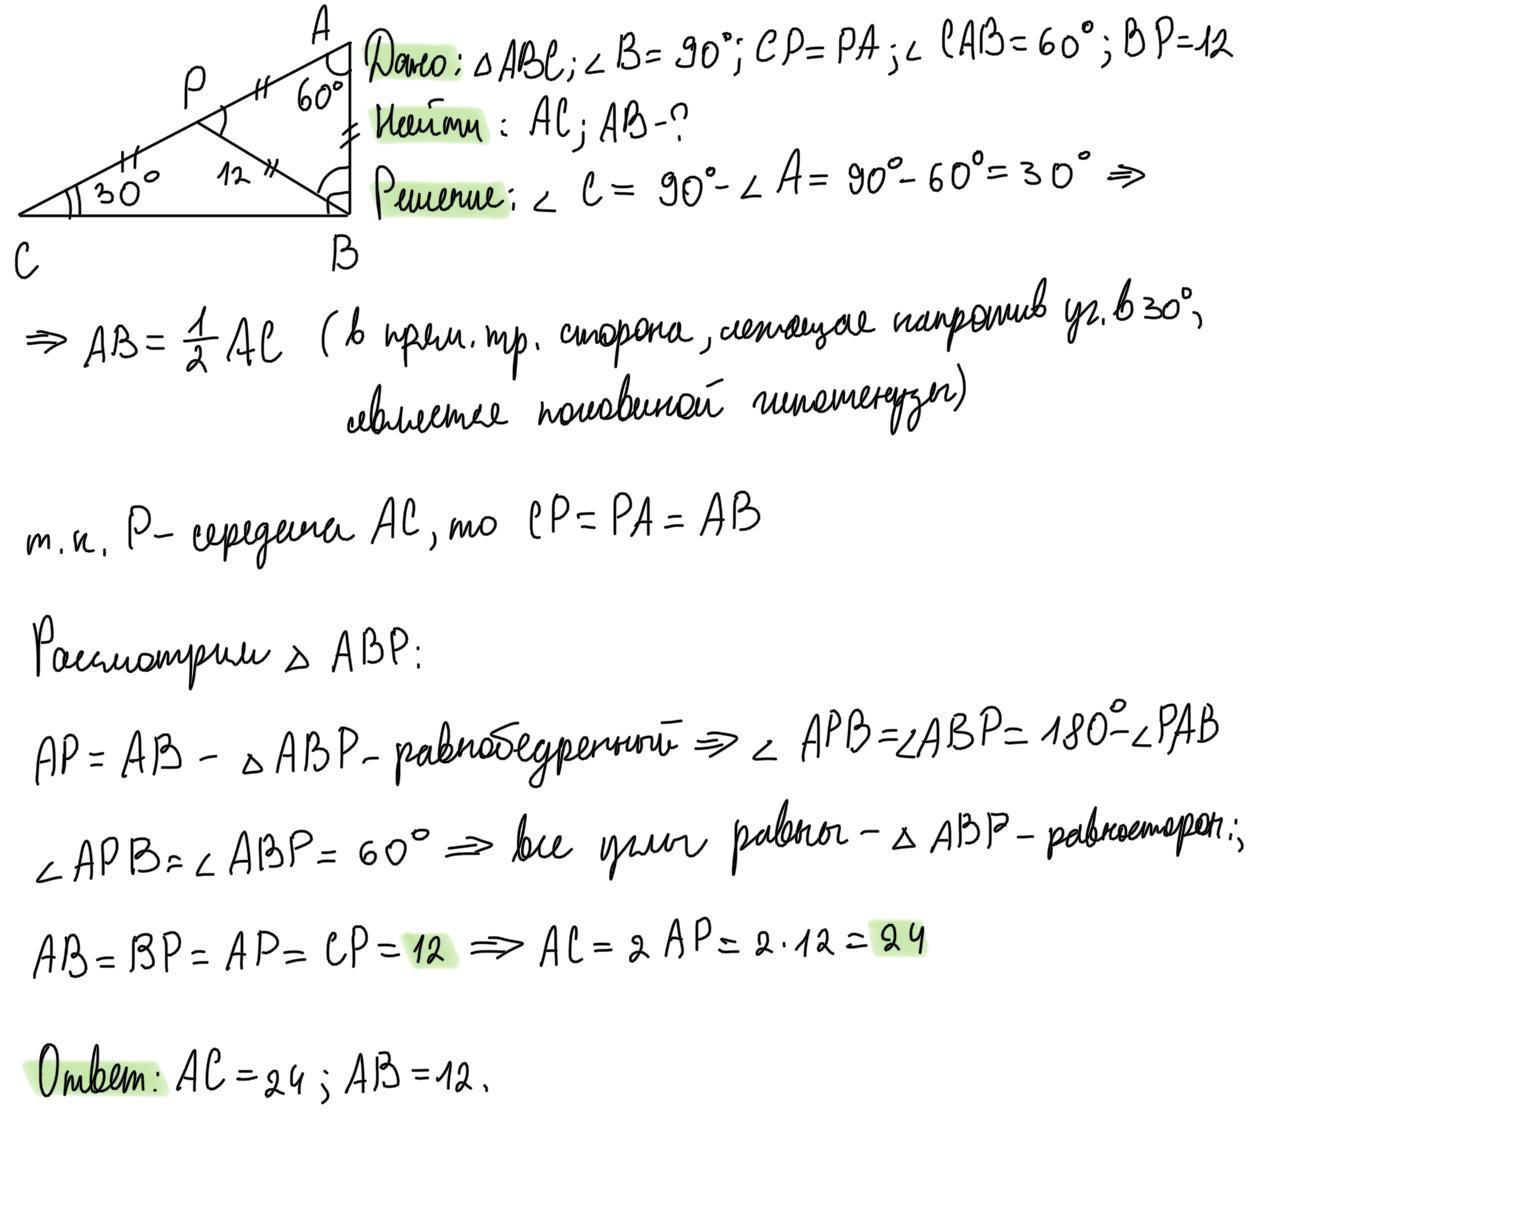 A
P
60°
12
30°
C
B
Дано: △ ABC; ∠ B = 90°; CP = PA; ∠ CAB = 60°; BP = 12
Найти: AC; AB - ?
Решение: ∠ C = 90° - ∠ A = 90° - 60° = 30° ⇒
⇒ AB = 1/2 AC (в прям. тр. сторона, лежащая напротив уг. в 30°,
является половиной гипотенузы)
т.к. P - середина AC, то CP = PA = AB
Рассмотрим △ ABP:
AP = AB - △ ABP - равнобедренный ⇒ ∠ APB = ∠ABP = 180° - ∠PAB
∠ APB = ∠ ABP = 60° ⇒ все углы равны - △ ABP - равносторон.;
AB = BP = AP = CP = 12 ⇒ AC = 2 AP = 2 · 12 = 24
Ответ: AC = 24; AB = 12.